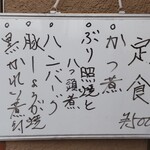 定食
・かつ煮
・ぶり照焼と
八ッ頭煮
・ハンバーグ
・豚しょうが焼
・黒かれい煮付